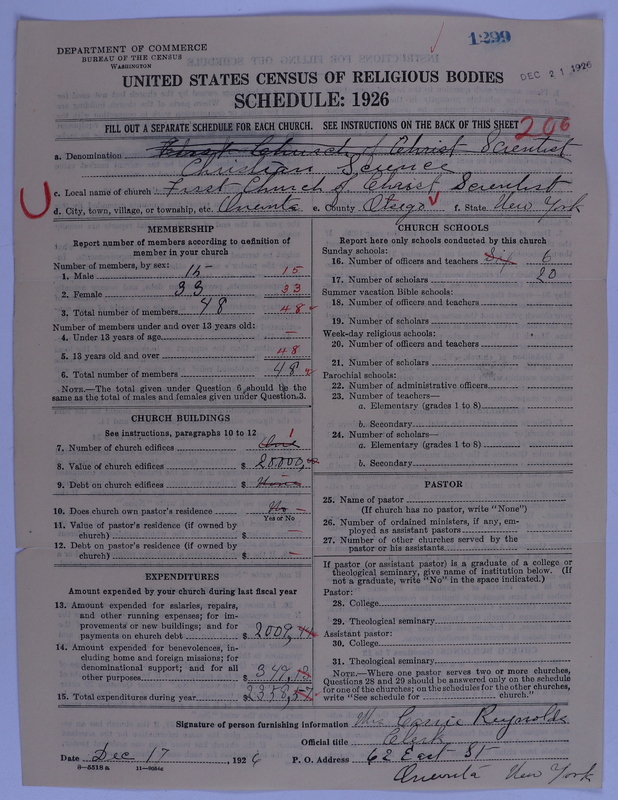 1299
DEC 21 1926
DEPARTMENT OF COMMERCE
BUREAU OF THE CENSUS
WASHINGTON
UNITED STATES CENSUS OF RELIGIOUS BODIES
SCHEDULE: 1926
FILL OUT A SEPARATE SCHEDULE FOR EACH CHURCH. SEE INSTRUCTIONS ON THE BACK OF THIS SHEET
206
a. Denomination First Church of Christ Scientist
Christian Science
c. Local name of church First Church of Christ Scientist
d. City, town, village, or township, etc. Oneonta e. County Otsego f. State New York
MEMBERSHIP
Report number of members according to definition of
member in your church
Number of members, by sex:
1. Male 15 15
2. Female 33 33
3. Total number of members 48 48
Number of members under and over 13 years old:
4. Under 13 years of age –
5. 13 years old and over 48
6. Total number of members 48
NOTE.—The total given under Question 6 should be the
same as the total of males and females given under Question 3.
CHURCH BUILDINGS
See instructions, paragraphs 10 to 12
7. Number of church edifices One 1
8. Value of church edifices $ 20000,
9. Debt on church edifices $ None
10. Does church own pastor's residence No –
Yes or No
11. Value of pastor's residence (if owned by
church) $ –
12. Debt on pastor's residence (if owned by
church) $ –
EXPENDITURES
Amount expended by your church during last fiscal year
13. Amount expended for salaries, repairs,
and other running expenses; for im-
provements or new buildings; and for
payments on church debt $ 2009,44
14. Amount expended for benevolences, in-
cluding home and foreign missions; for
denominational support; and for all
other purposes $ 349,13
15. Total expenditures during year $ 2358,57
CHURCH SCHOOLS
Report here only schools conducted by this church
Sunday schools:
16. Number of officers and teachers Six 6
17. Number of scholars 20
Summer vacation Bible schools:
18. Number of officers and teachers
19. Number of scholars
Week-day religious schools:
20. Number of officers and teachers
21. Number of scholars
Parochial schools:
22. Number of administrative officers
23. Number of teachers—
a. Elementary (grades 1 to 8)
b. Secondary
24. Number of scholars—
a. Elementary (grades 1 to 8)
b. Secondary
PASTOR
25. Name of pastor
(If church has no pastor, write "None")
26. Number of ordained ministers, if any, em-
ployed as assistant pastors
27. Number of other churches served by the
pastor or his assistants
If pastor (or assistant pastor) is a graduate of a college or
theological seminary, give name of institution below. (If
not a graduate, write "No" in the space indicated.)
Pastor:
28. College
29. Theological seminary
Assistant pastor:
30. College
31. Theological seminary
NOTE.—Where one pastor serves two or more churches,
Questions 28 and 29 should be answered only on the schedule
for one of the churches; on the schedules for the other churches,
write "See schedule for church."
Signature of person furnishing information Mrs Carrie Reynolds
Official title Clerk
Date Dec 17, 1926 P. O. Address 62 East St
8—5518 a 11—9054a
Oneonta New York